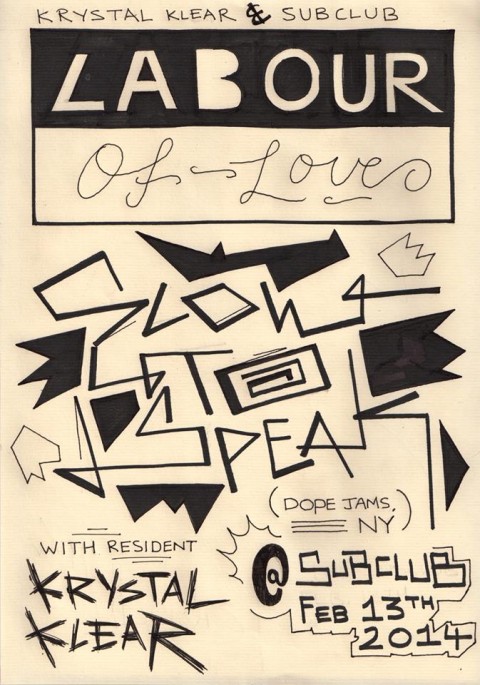 KRYSTAL KLEAR & SUBCLUB
LABOUR
Of Love
SLOW
TO
SPEAK
(DOPE JAMS,
NY)
WITH RESIDENT
KRYSTAL
KLEAR
@ SUBCLUB
FEB 13TH
2014